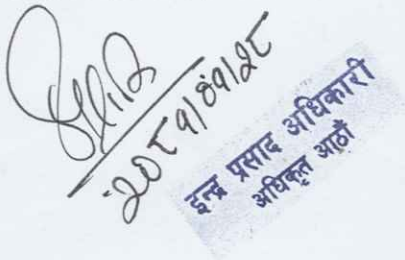 २०८१/०१/२८
इन्द्र प्रसाद अधिकारी
अधिकृत आठौँ